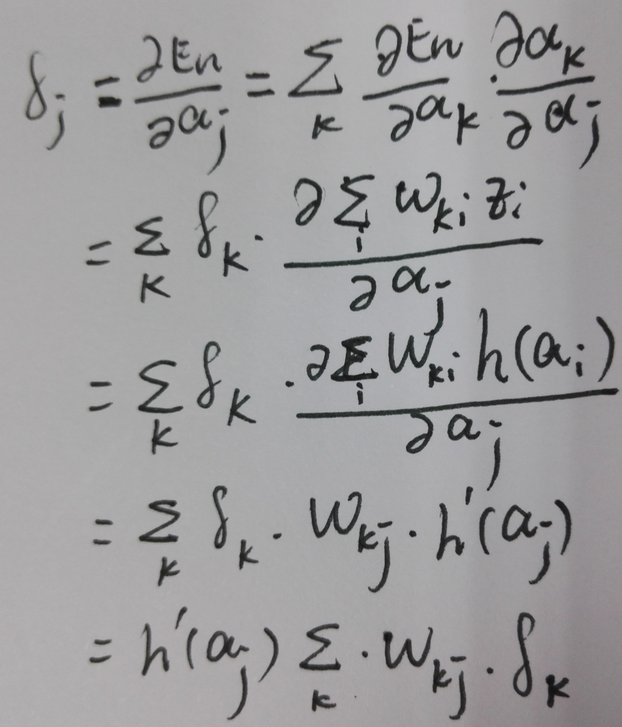 δ_j = ∂En/∂a_j = Σ_k ∂En/∂a_k · ∂a_k/∂a_j
= Σ_k δ_k · ∂Σ_i w_ki z_i / ∂a_j
= Σ_k δ_k · ∂Σ_i w_ki h(a_i) / ∂a_j
= Σ_k δ_k · w_kj · h'(a_j)
= h'(a_j) Σ_k · w_kj · δ_k